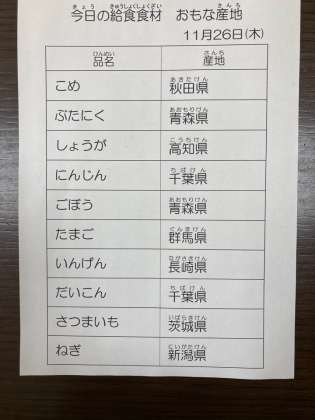 今日の給食食材 おもな産地
11月26日(木)
品名 産地
こめ 秋田県
ぶたにく 青森県
しょうが 高知県
にんじん 千葉県
ごぼう 青森県
たまご 群馬県
いんげん 長崎県
だいこん 千葉県
さつまいも 茨城県
ねぎ 新潟県